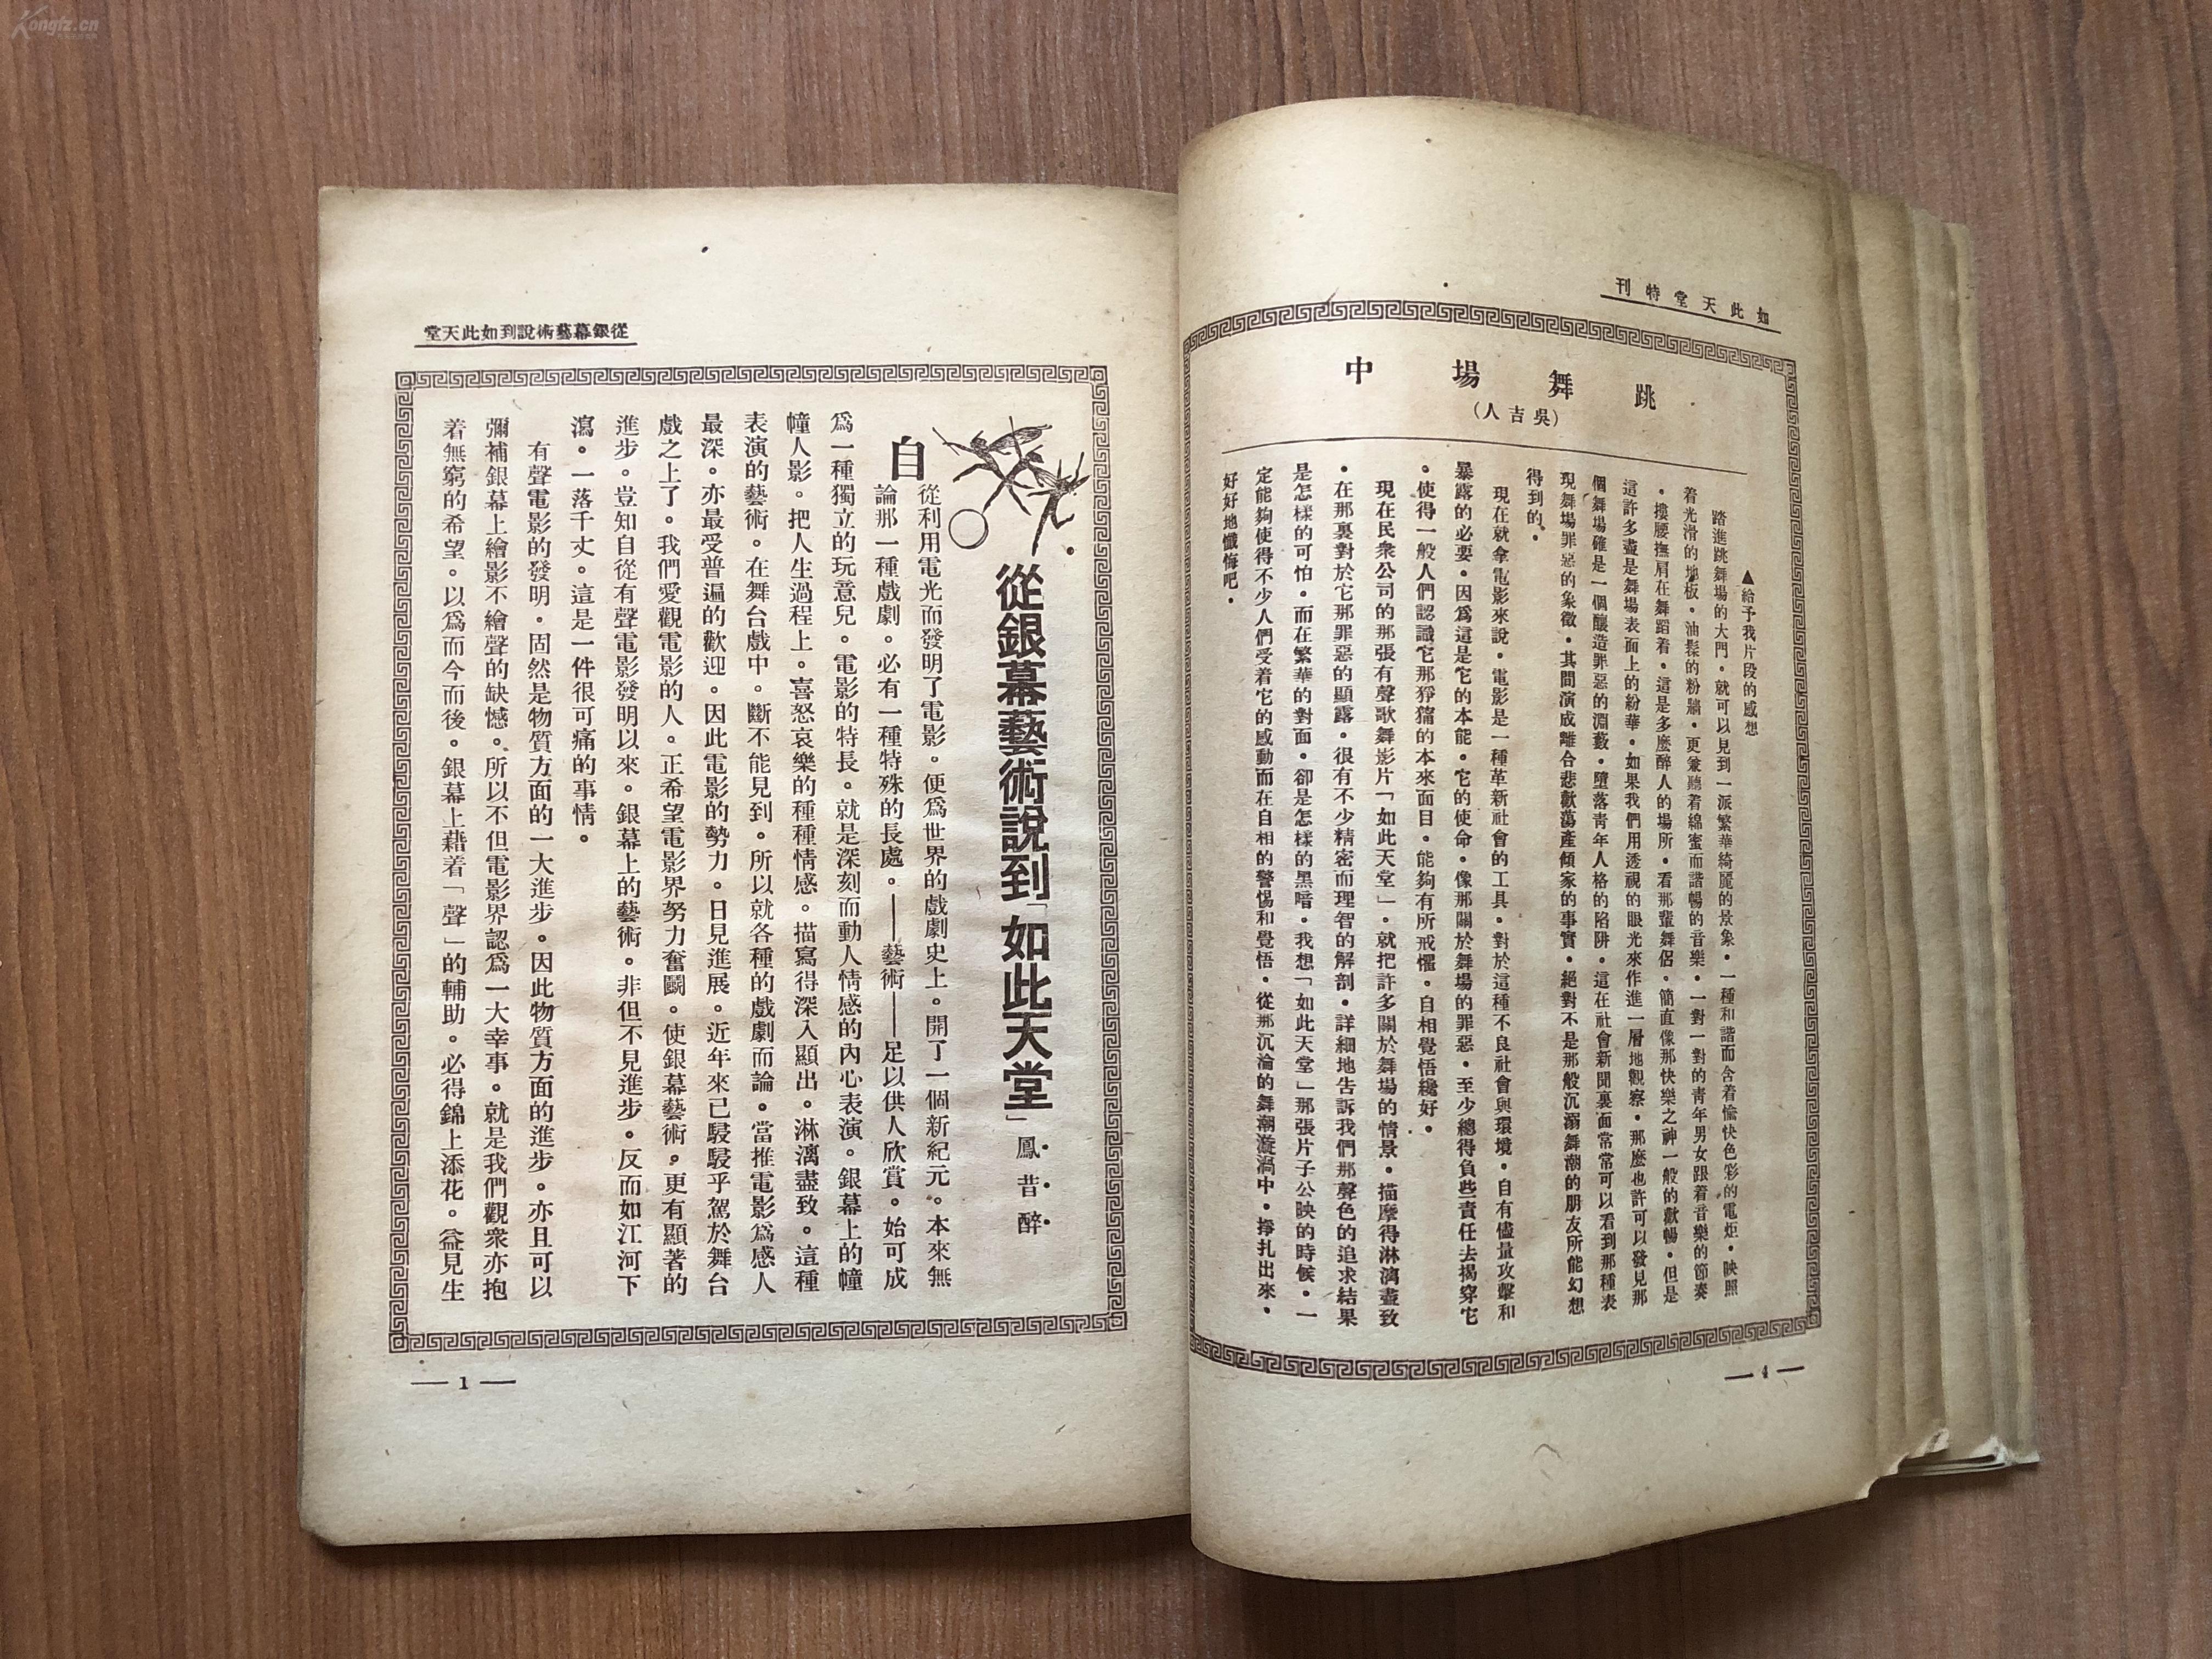 Kongfz.cn
如此天堂特刊
跳舞場中
(吳吉人)
▲給予我片段的感想
踏進跳舞場的大門。就可以見到一派繁華綺麗的景象。一種和諧而含着愉快色彩的電炬。映照
着光滑的地板。油髹的粉牆。更兼聽着綿蜜而諧暢的音樂。一對一對的青年男女跟着音樂的節奏
。摟腰撫肩在舞蹈着。這是多麽醉人的場所。看那輩舞侶。簡直像那快樂之神一般的歡暢。但是
這許多盡是舞場表面上的紛華。如果我們用透視的眼光來作進一層地觀察。那麽也許可以發見那
個舞場確是一個釀造罪惡的淵藪。墮落青年人格的陷阱。這在社會新聞裏面常常可以看到那種表
現舞場罪惡的象徵。其間演成離合悲歡蕩產傾家的事實。絕對不是那般沉溺舞潮的朋友所能幻想
得到的。
現在就拿電影來說。電影是一種革新社會的工具。對於這種不良社會與環境。自有儘量攻擊和
暴露的必要。因爲這是它的本能。它的使命。像那關於舞場的罪惡。至少總得負些責任去揭穿它
。使得一般人們認識它那猙獰的本來面目。能夠有所戒懼。自相覺悟纔好。
現在民衆公司的那張有聲歌舞影片「如此天堂」。就把許多關於舞場的情景。描摩得淋漓盡致
。在那裏對於它那罪惡的顯露。很有不少精密而理智的解剖。詳細地告訴我們那聲色的追求結果
是怎樣的可怕。而在繁華的對面。卻是怎樣的黑暗。我想「如此天堂」那張片子公映的時候。一
定能夠使得不少人們受着它的感動而在自相的警惕和覺悟。從那沉淪的舞潮漩渦中。掙扎出來。
好好地懺悔吧。
— 4 —
從銀幕藝術說到如此天堂
從銀幕藝術說到「如此天堂」 鳳昔醉
自從利用電光而發明了電影。便爲世界的戲劇史上。開了一個新紀元。本來無
論那一種戲劇。必有一種特殊的長處。——藝術——足以供人欣賞。始可成
爲一種獨立的玩意兒。電影的特長。就是深刻而動人情感的內心表演。銀幕上的幢
幢人影。把人生過程上。喜怒哀樂的種種情感。描寫得深入顯出。淋漓盡致。這種
表演的藝術。在舞台戲中。斷不能見到。所以就各種的戲劇而論。當推電影爲感人
最深。亦最受普遍的歡迎。因此電影的勢力。日見進展。近年來已駸駸乎駕於舞台
戲之上了。我們愛觀電影的人。正希望電影界努力奮鬬。使銀幕藝術。更有顯著的
進步。豈知自從有聲電影發明以來。銀幕上的藝術。非但不見進步。反而如江河下
瀉。一落千丈。這是一件很可痛的事情。
有聲電影的發明。固然是物質方面的一大進步。因此物質方面的進步。亦且可以
彌補銀幕上繪影不繪聲的缺憾。所以不但電影界認爲一大幸事。就是我們觀衆亦抱
着無窮的希望。以爲而今而後。銀幕上藉着「聲」的輔助。必得錦上添花。益見生
— 1 —